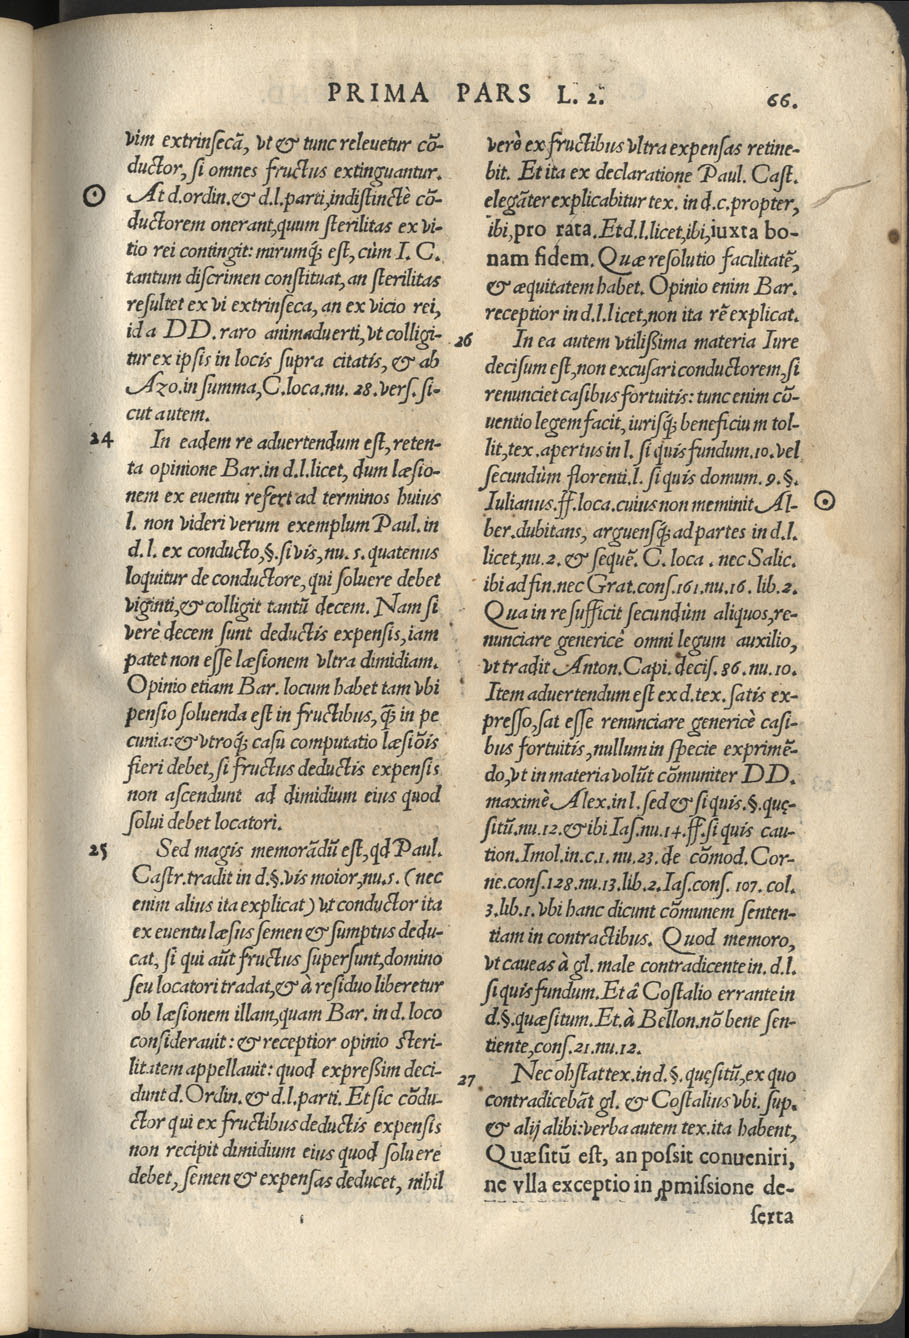 PRIMA PARS L. 2. 66.
vim extrinsecã, vt & tunc releuetur cõ-
ductor, si omnes fructus extinguantur.
At d.ordin.& d.l.parti,indistinctè cõ-
ductorem onerant,quum sterilitas ex vi-
tio rei contingit: mirumq́; est, cùm I. C.
tantum discrimen constituat, an sterilitas
resultet ex vi extrinseca, an ex vicio rei,
id a DD. raro animaduerti, vt colligi-
tur ex ipsis in locis supra citatis, & ab
Azo.in summa,C.loca.nu. 28. vers. si-
cut autem.
24 In eadem re aduertendum est, reten-
ta opinione Bar.in d.l.licet, dum læsio-
nem ex euentu refert ad terminos huius
l. non videri verum exemplum Paul. in
d. l. ex conducto,§. si vis, nu. 5. quatenus
loquitur de conductore, qui soluere debet
viginti,& colligit tantũ decem. Nam si
verè decem sunt deductis expensis, iam
patet non esse læsionem vltra dimidiam.
Opinio etiam Bar. locum habet tam vbi
pensio soluenda est in fructibus, q̃ in pe
cunia:& vtroq́; casu computatio læsiõis
fieri debet, si fructus deductis expensis
non ascendunt ad dimidium eius quod
solui debet locatori.
25 Sed magis memorãdũ est, qd Paul.
Castr.tradit in d.§.vis moior,nu.5. (nec
enim alius ita explicat) vt conductor ita
ex euentu læsus semen & sumptus dedu-
cat, si qui aũt fructus supersunt,domino
seu locatori tradat,& à residuo liberetur
ob læsionem illam, quam Bar. in d. loco
considerauit: & receptior opinio steri-
litatem appellauit: quod expressim deci-
dunt d. Ordin. & d.l.parti. Et sic cõdu-
ctor qui ex fructibus deductis expensis
non recipit dimidium eius quod soluere
debet, semen & expensas deducet, nihil
verò ex fructibus vltra expensas retine-
bit. Et ita ex declaratione Paul. Cast.
elegãter explicabitur tex. in d.c.propter,
ibi,pro rata. Et d.l.licet,ibi,iuxta bo-
nam fidem. Quæ resolutio facilitatẽ,
& æquitatem habet. Opinio enim Bar.
receptior in d.l.licet,non ita rẽ explicat.
26 In ea autem vtilissima materia Iure
decisum est,non excusari conductorem,si
renunciet casibus fortuitis: tunc enim cõ-
uentio legem facit, iurisq́; beneficium tol-
lit,tex.apertus in l. si quis fundum.10.vel
secundùm florenti.l. si quis domum. 9. §.
Iulianus.ff.loca.cuius non meminit Al-
ber.dubitans, arguensq́; ad partes in d.l.
licet,nu.2. & sequẽ. C. loca . nec Salic.
ibi ad fin.nec Grat.cons.161.nu.16. lib.2.
Qua in re sufficit secundùm aliquos,re-
nunciare genericè omni legum auxilio,
vt tradit Anton.Capi.decis.86.nu.10.
Item aduertendum est ex d.tex. satis ex-
presso,sat esse renunciare genericè casi-
bus fortuitis,nullum in specie exprimẽ-
do,vt in materia volũt cõmuniter DD.
maximè Alex.in l. sed & si quis.§.quę-
sitũ.nu.12.& ibi Ias.nu.14.ff.si quis cau-
tion.Imol.in.c.1. nu.23. de cõmod. Cor-
ne.cons.128.nu.13.lib.2.Ias.cons. 107. col.
3.lib.1. vbi hanc dicunt cõmunem senten-
tiam in contractibus. Quod memoro,
vt caueas à gl. male contradicente in. d.l.
si quis fundum.Et á Costalio errante in
d.§.quæsitum.Et.à Bellon.nõ bene sen-
tiente,cons.21.nu.12.
27 Nec obstat tex.in d.§. quęsitũ,ex quo
contradicebãt gl. & Costalius vbi. sup.
& alij alibi:verba autem tex.ita habent,
Quæsitũ est, an possit conueniri,
ne vlla exceptio in ꝓmissione de-
serta